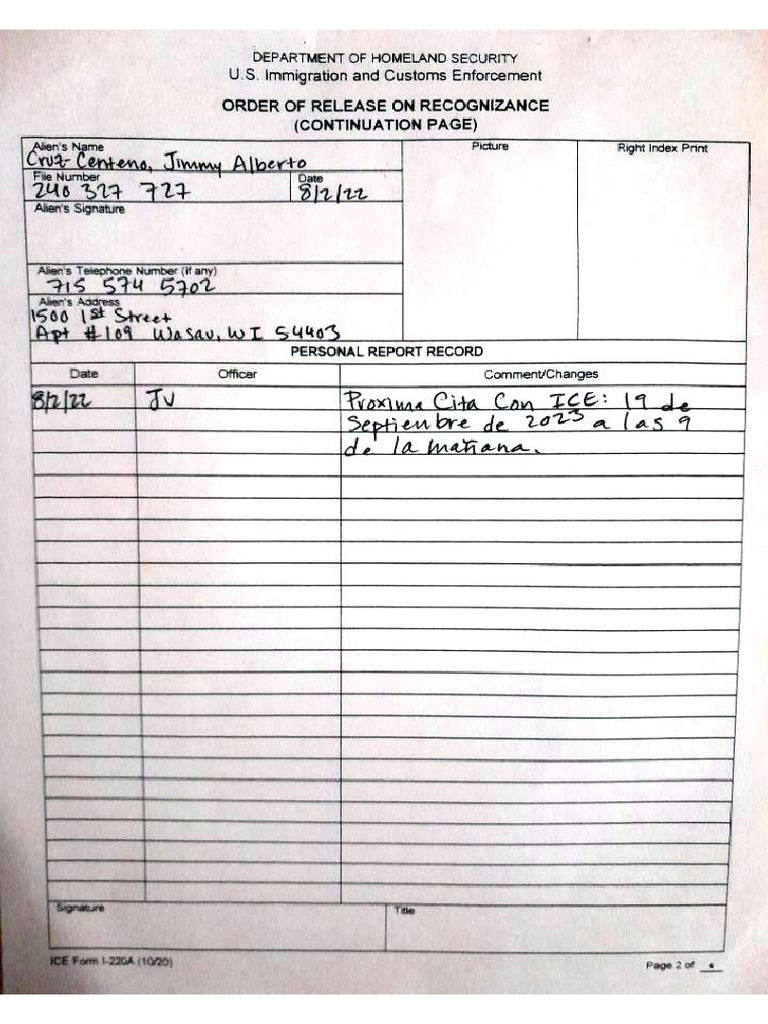 DEPARTMENT OF HOMELAND SECURITY
U.S. Immigration and Customs Enforcement
ORDER OF RELEASE ON RECOGNIZANCE
(CONTINUATION PAGE)
Alien's Name
Cruz-Centeno, Jimmy Alberto
Picture
Right Index Print
File Number
240 327 727
Date
8/2/22
Alien's Signature
Alien's Telephone Number (if any)
715 574 5702
Alien's Address
1500 1st Street
Apt #109 Wasau, WI 54403
PERSONAL REPORT RECORD
Date Officer Comment/Changes
8/2/22 JV Proxima Cita Con ICE: 19 de
Septienbre de 2023 a las 9
de la mañana.
Signature Title
ICE Form I-220A (10/20) Page 2 of